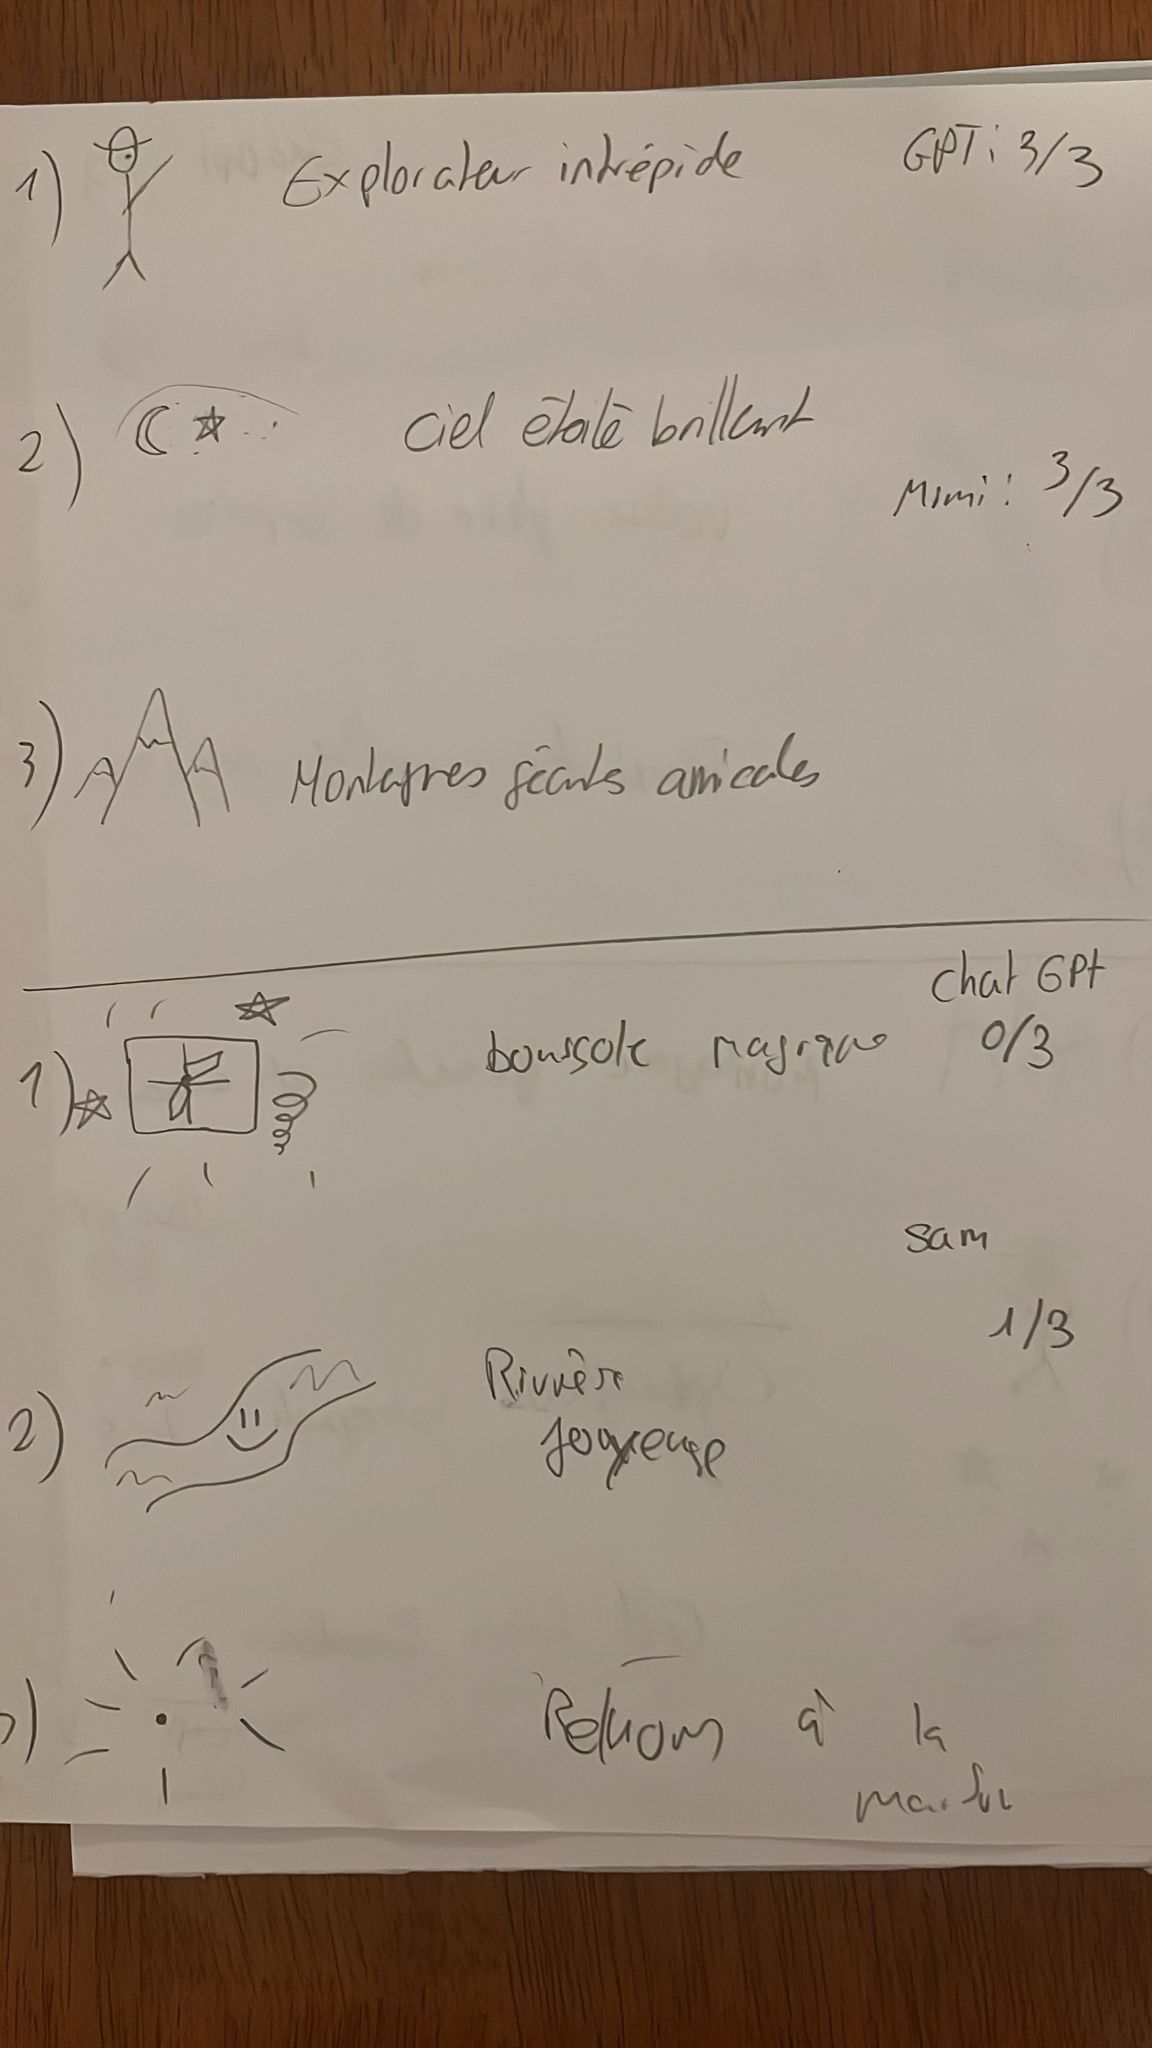 1) Explorateur intrépide GPT: 3/3
2) Ciel étoilé brillant
Mimi: 3/3
3) Montagnes géantes amicales
Chat GPt
1) boussole magique 0/3
Sam
1/3
2) Rivière
Joyeuse
Retour à la
maison